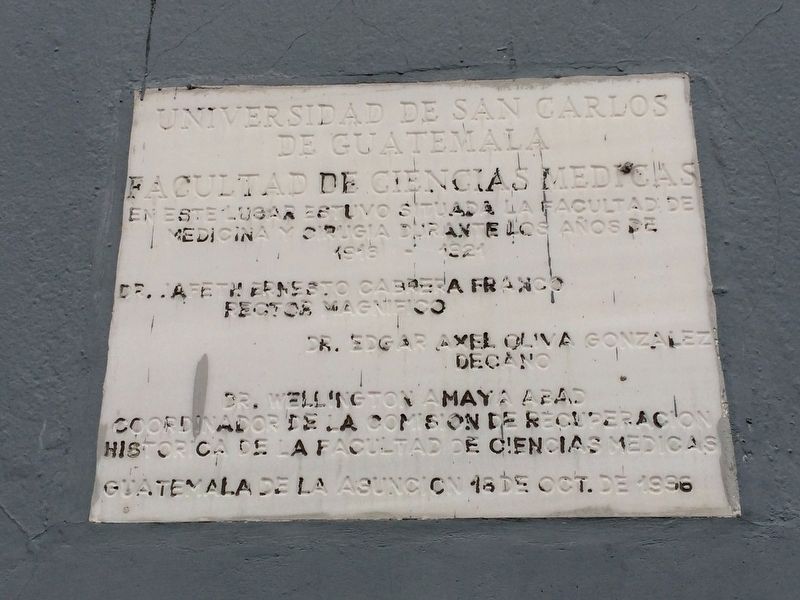 UNIVERSIDAD DE SAN CARLOS
DE GUATEMALA
FACULTAD DE CIENCIAS MEDICAS
EN ESTE LUGAR ESTUVO SITUADA LA FACULTAD DE
MEDICINA Y CIRUGIA DURANTE LOS AÑOS DE
1918 - 1921
DR. JAFETH ERNESTO CABRERA FRANCO
RECTOR MAGNIFICO
DR. EDGAR AXEL OLIVA GONZALEZ
DECANO
DR. WELLINGTON AMAYA ABAD
COORDINADOR DE LA COMISION DE RECUPERACION
HISTORICA DE LA FACULTAD DE CIENCIAS MEDICAS
GUATEMALA DE LA ASUNCION 18 DE OCT. DE 1996